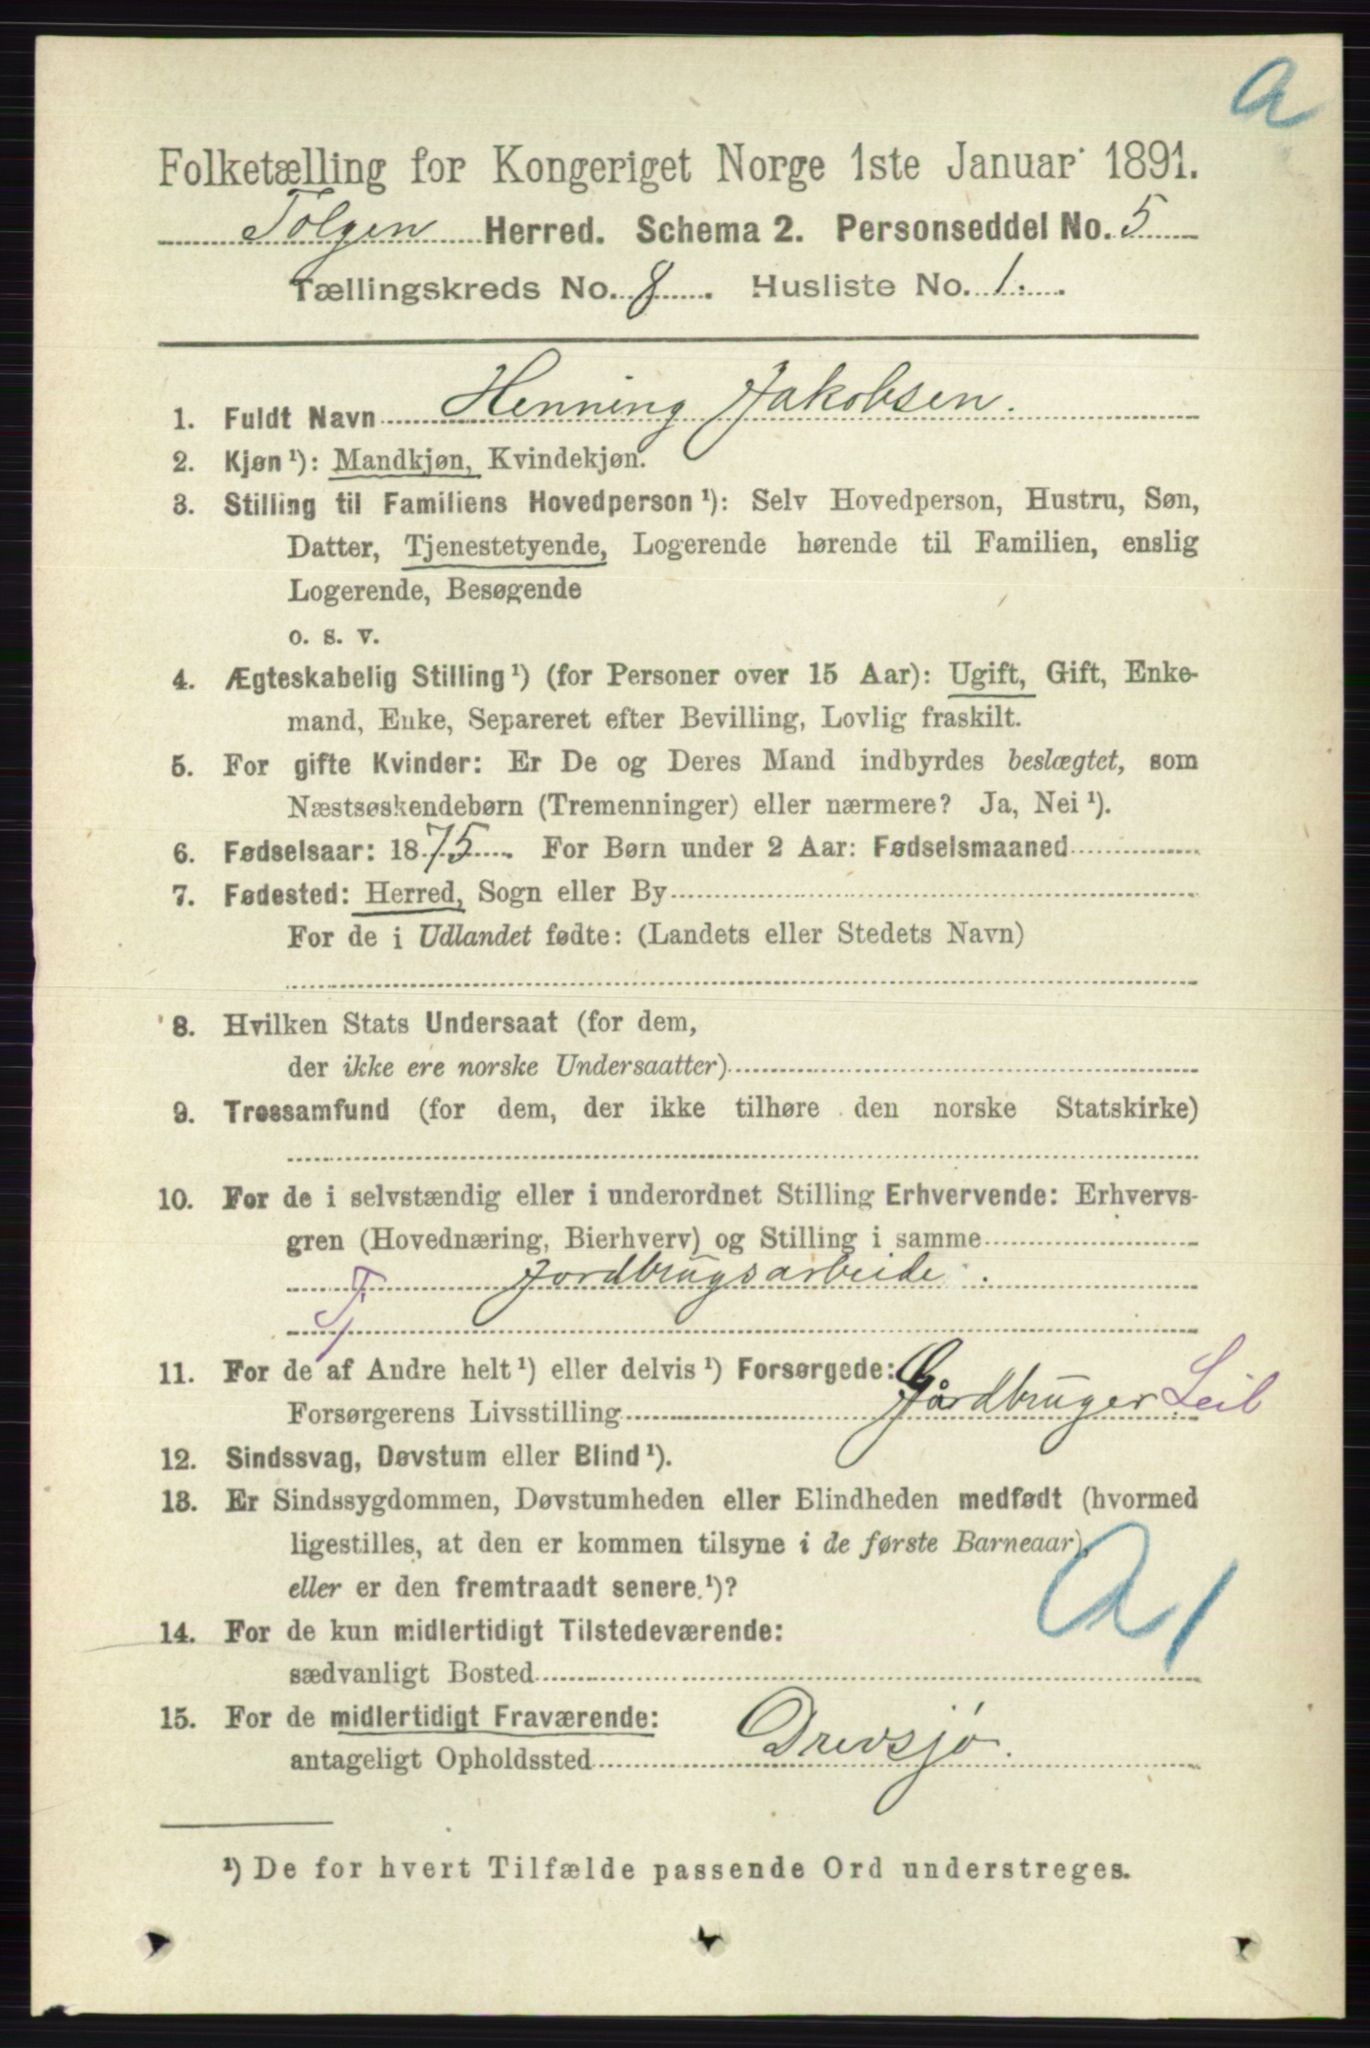 a
Folketælling for Kongeriget Norge 1ste Januar 1891.
Tolgen Herred. Schema 2. Personseddel No. 5
Tællingskreds No. 8. Husliste No. 1.
1. Fuldt Navn Henning Jakobsen.
2. Kjøn ¹): Mandkjøn, Kvindekjøn.
3. Stilling til Familiens Hovedperson ¹): Selv Hovedperson, Hustru, Søn,
Datter, Tjenestetyende, Logerende hørende til Familien, enslig
Logerende, Besøgende
o. s. v.
4. Ægteskabelig Stilling ¹) (for Personer over 15 Aar): Ugift, Gift, Enke-
mand, Enke, Separeret efter Bevilling, Lovlig fraskilt.
5. For gifte Kvinder: Er De og Deres Mand indbyrdes beslægtet, som
Næstsøskendebørn (Tremenninger) eller nærmere? Ja, Nei ¹).
6. Fødselsaar: 1875. For Børn under 2 Aar: Fødselsmaaned
7. Fødested: Herred, Sogn eller By
For de i Udlandet fødte: (Landets eller Stedets Navn)
8. Hvilken Stats Undersaat (for dem,
der ikke ere norske Undersaatter)
9. Trossamfund (for dem, der ikke tilhøre den norske Statskirke)
10. For de i selvstændig eller i underordnet Stilling Erhvervende: Erhvervs-
gren (Hovednæring, Bierhverv) og Stilling i samme
Jordbrugsarbeide.
Tj
11. For de af Andre helt ¹) eller delvis ¹) Forsørgede:
Forsørgerens Livsstilling Gårdbruger Leil
12. Sindssvag, Døvstum eller Blind ¹).
13. Er Sindssygdommen, Døvstumheden eller Blindheden medfødt (hvormed
ligestilles, at den er kommen tilsyne i de første Barneaar),
eller er den fremtraadt senere. ¹)?
A1
14. For de kun midlertidigt Tilstedeværende:
sædvanligt Bosted
15. For de midlertidigt Fraværende:
antageligt Opholdssted Drevsjø.
¹) De for hvert Tilfælde passende Ord understreges.